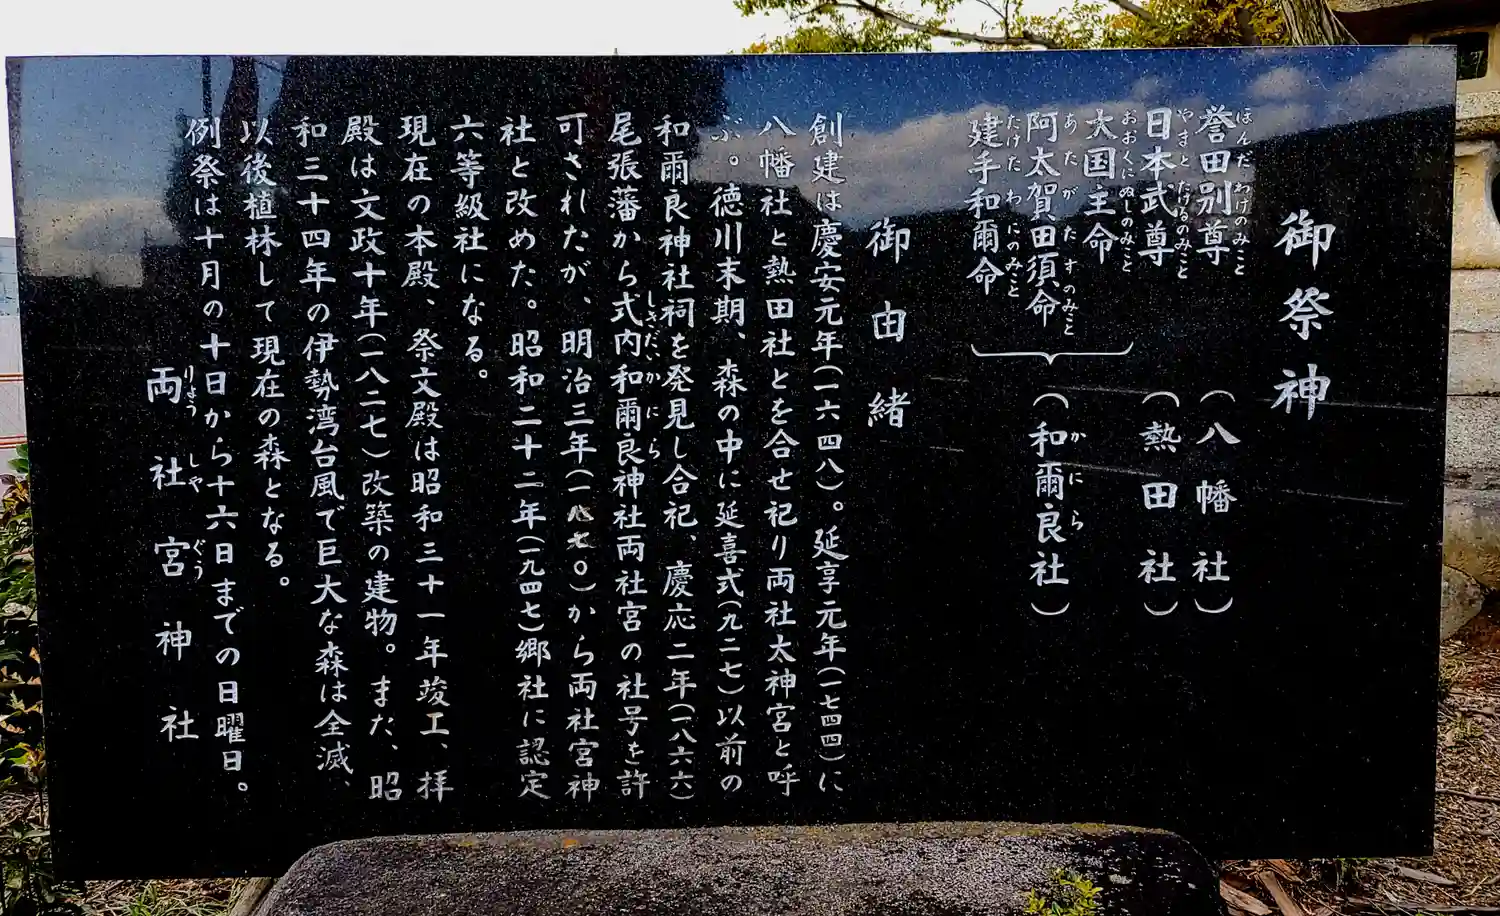 御祭神
誉田別尊（八幡社）
ほんだわけのみこと
日本武尊（熱田社）
やまとたけるのみこと
大国主命
おおくにぬしのみこと
阿太賀田須命（和爾良社）
あたがたすのみこと
かにら
建手和爾命
たけたわにのみこと
御由緒
創建は慶安元年（一六四八）。延享元年（一七四四）に
八幡社と熱田社とを合せ祀り両社太神宮と呼
ぶ。徳川末期、森の中に延喜式（九二七）以前の
和爾良神社祠を発見し合祀、慶応二年（一八六六）
尾張藩から式内和爾良神社両社宮の社号を許
しきだいかにら
可されたが、明治三年（一八七〇）から両社宮神
社と改めた。昭和二十二年（一九四七）郷社に認定
六等級社になる。
現在の本殿、祭文殿は昭和三十一年竣工、拝
殿は文政十年（一八二七）改築の建物。まだ、昭
和三十四年の伊勢湾台風で巨大な森は全滅、
以後植林して現在の森となる。
例祭は十月の十日から十六日までの日曜日。
両社宮神社
りょうしゃぐう